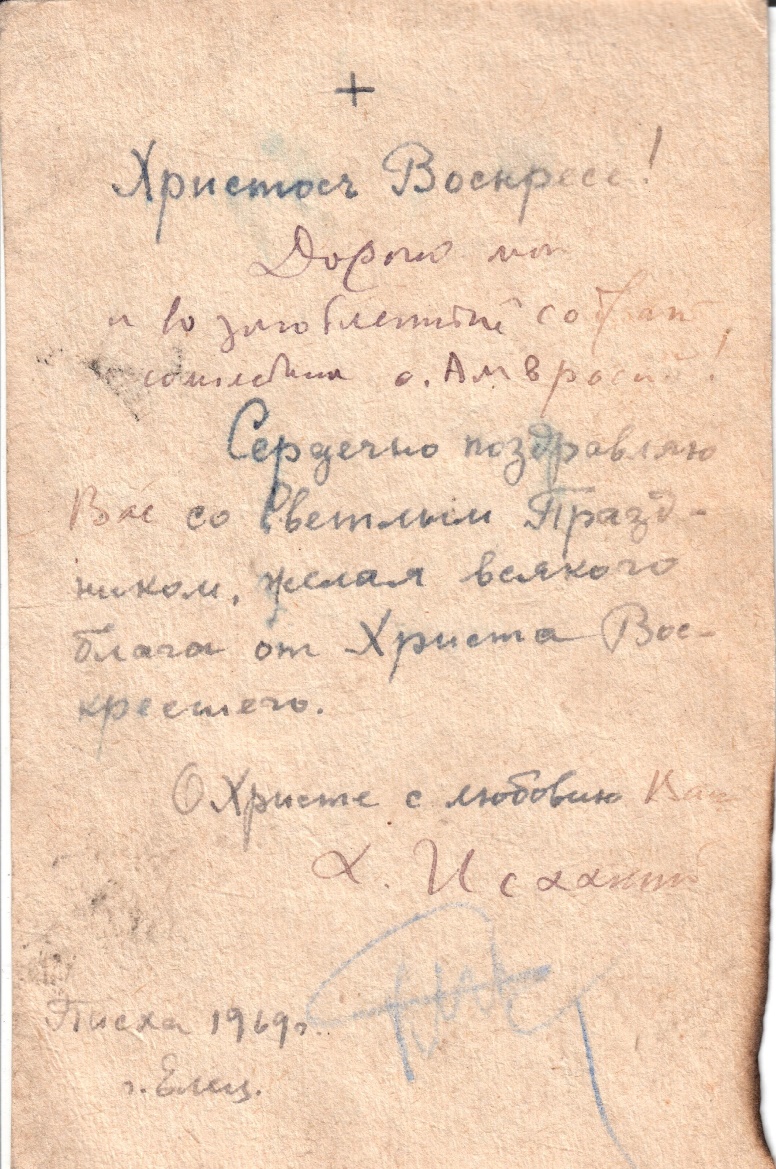 +
Христосъ Воскресе!
Дорогой мой
и возлюбленный собрат
о. Амвросий!
Сердечно поздравляю
Вас со Светлым Празд-
ником, желая всякого
блага от Христа Вос-
кресшего.
О Христе с любовию Ваш
А. Исаакий
Пасха 1969 г.
г. Елец.